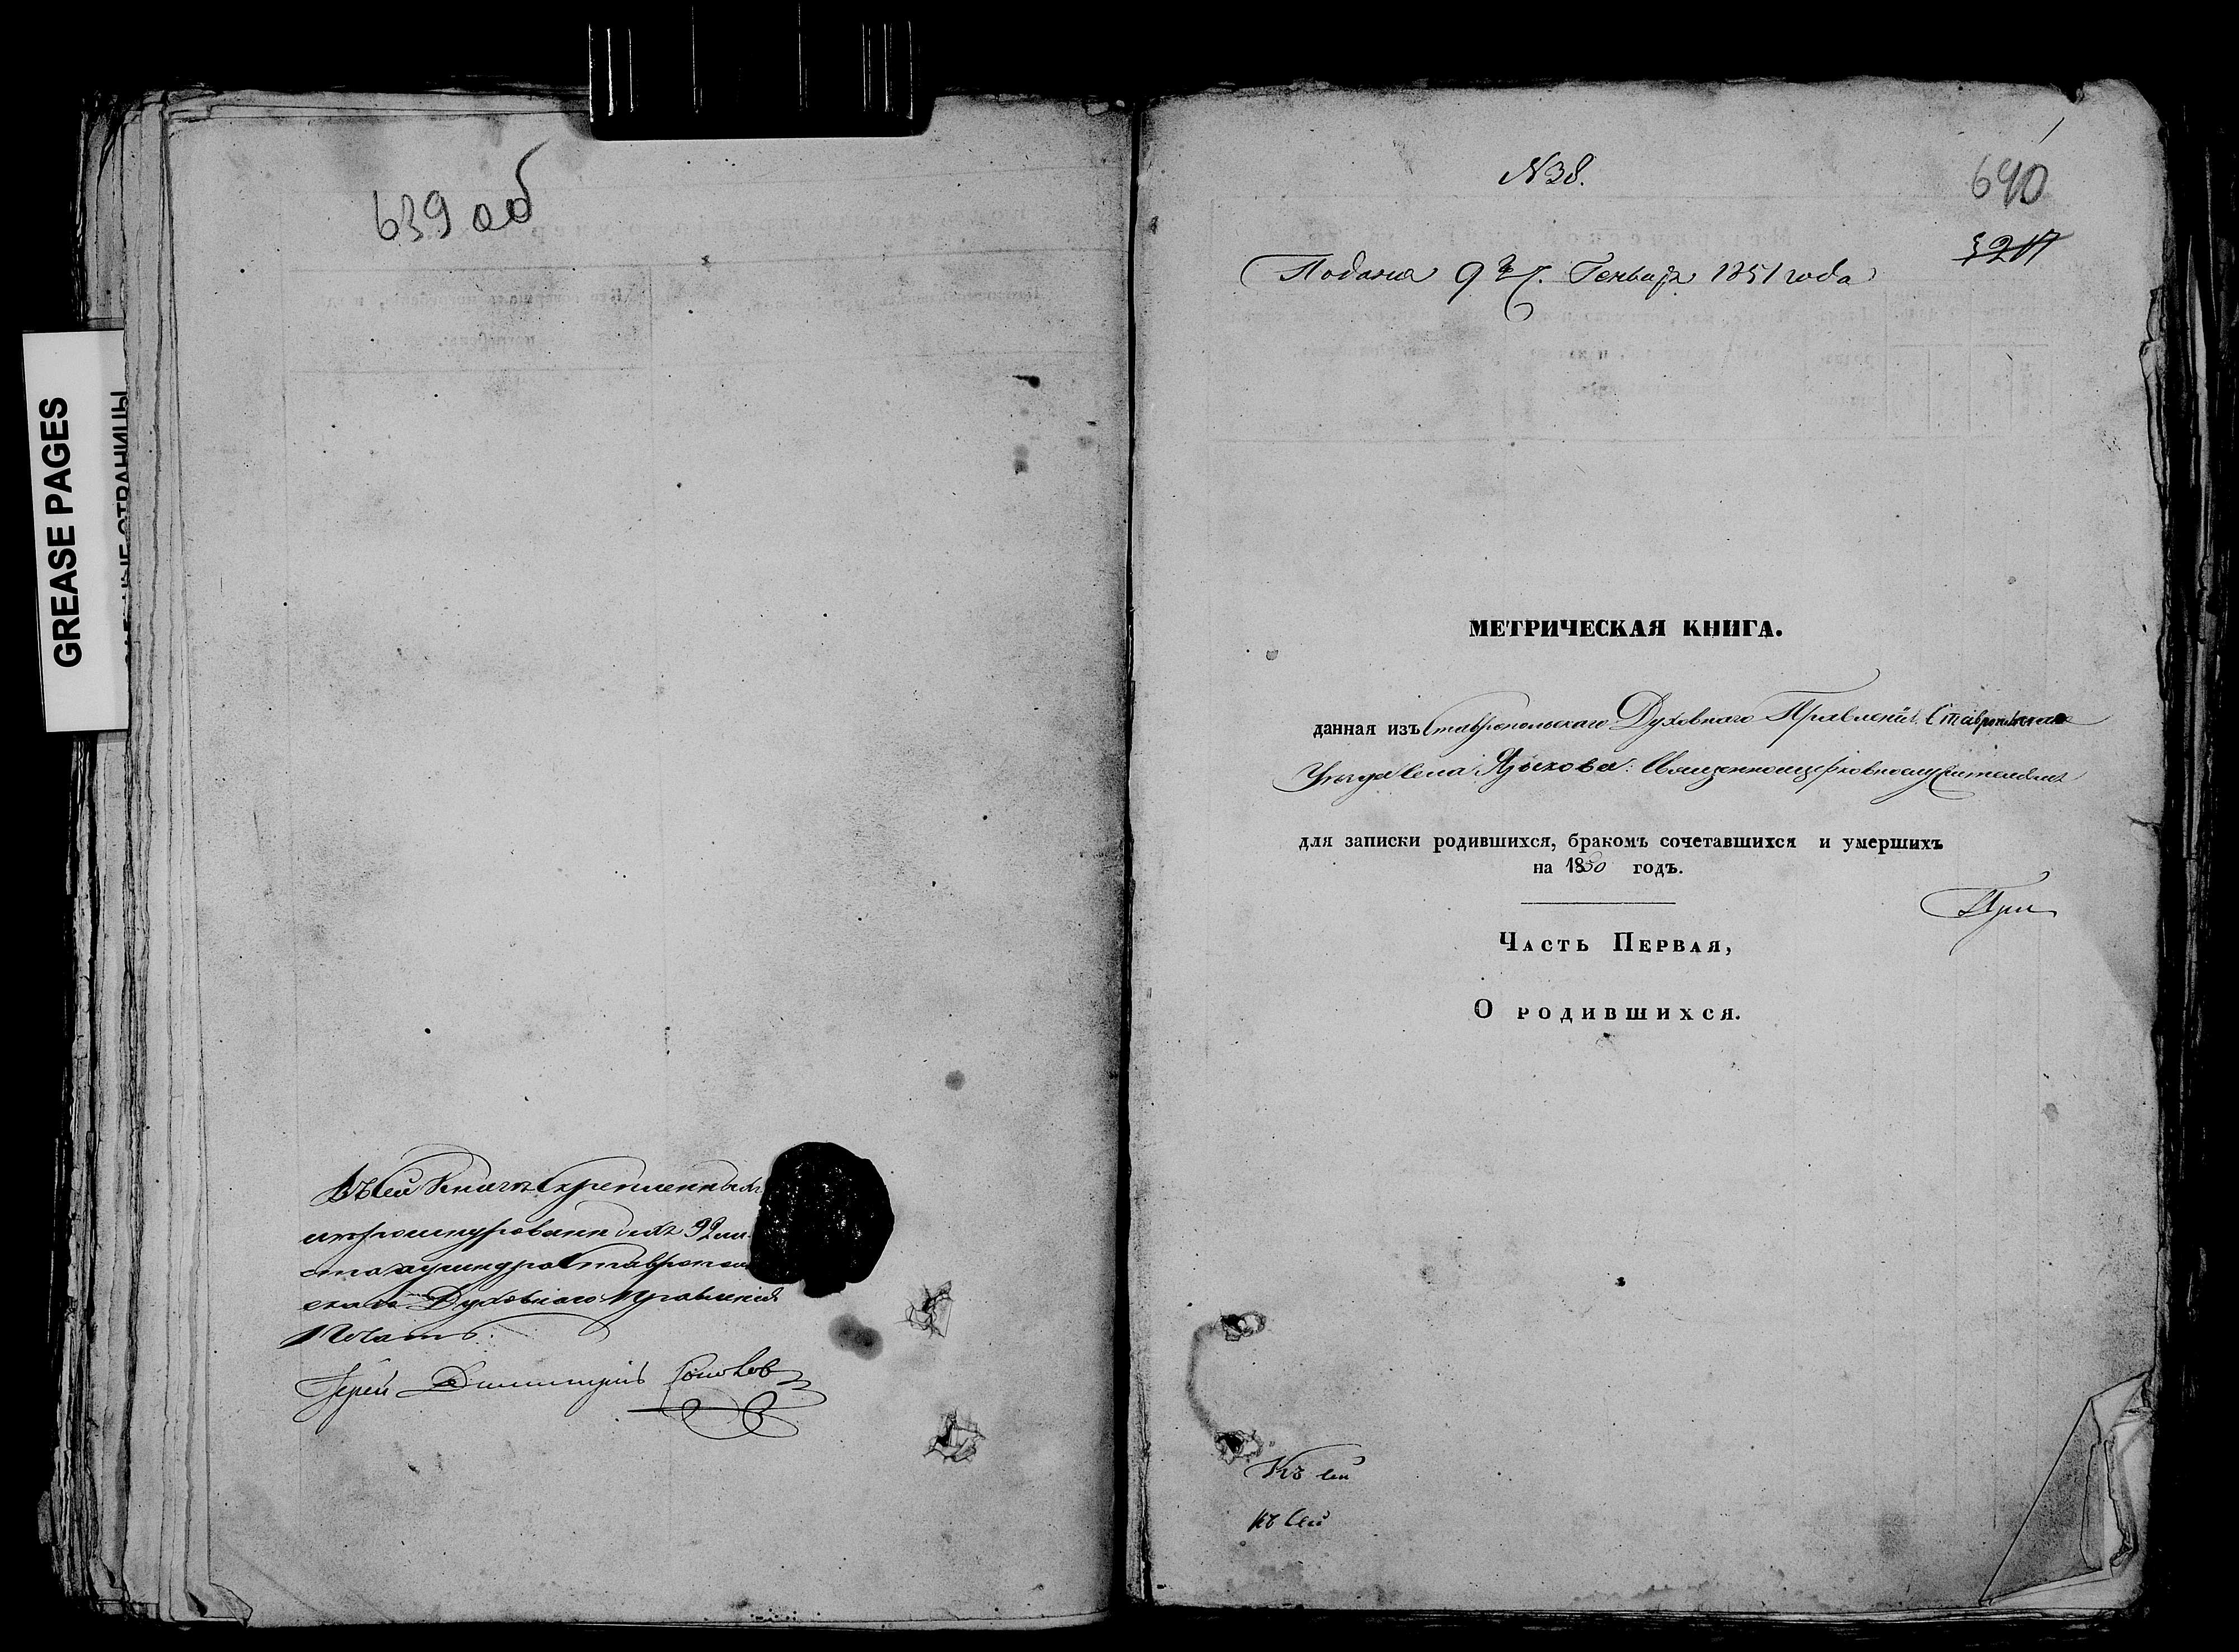 GREASE PAGES
639 об
Въ сей книгѣ скрепленныхъ
и прошнурованныхъ 92 ли-
ста душнура Ставрополь
скаго Духовнаго Правленія
Печать.
Іерей Димитрій
№ 38.
640
Подана 9 Генваря 1851 года
МЕТРИЧЕСКАЯ КНИГА.
данная изъ Ставропольскаго Духовнаго Правленія, Ставропольскаго
Уѣзда Села Языкова: Священноцерковнослужителямъ
для записки родившихся, бракомъ сочетавшихся и умершихъ
на 1850 годъ.
Часть Первая,
О родившихся.
Къ сей
къ сей